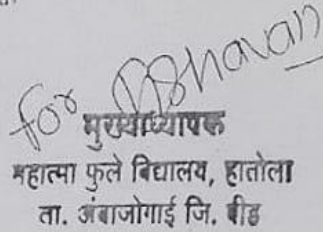 for Bhavan
मुख्याध्यापक
महात्मा फुले विद्यालय, हातोला
ता. अंबाजोगाई जि. बीड